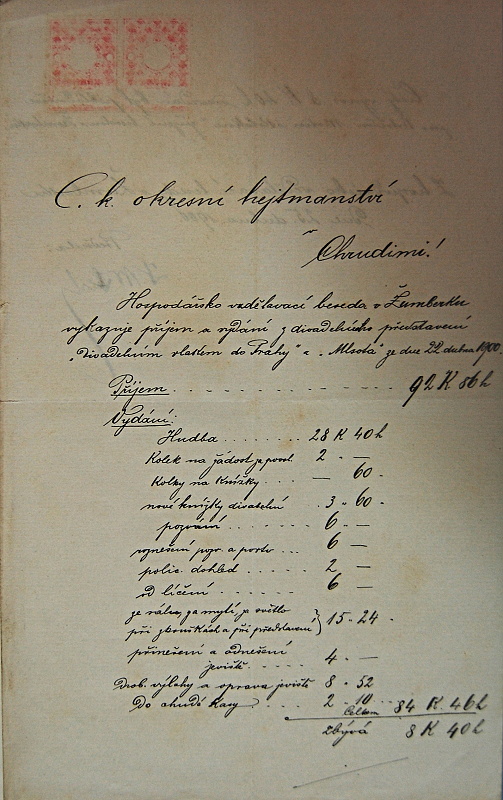 C. k. okresní hejtmanství
v Chrudimi!
Hospodářsko vzdělavací beseda v Žumberku
vykazuje příjem a vydání z divadelního představení
"Divadelním vlakem do Prahy" a "Mlsota" ze dne 22. dubna 1900.
Příjem . . . . . . . . . . . . 92 K 86 h
Vydání:
Hudba . . . . . . . . 28 K 40 h
Kolek na žádost za povol. 2 . —
Kolky na knížky . . . — 60 .
nové knížky divadelní . 3 . 60 .
pozvání . . . . . . . 6 . —
roznešení pozv. a porto . . . 6 —
polic. dohled . . . . . 2 —
od líčení . . . . . . 6 —
ze sálu, za mytí za světlo
při zkouškách a při představení } 15 . 24 .
přinešení a odnešení
jeviště . . . . . 4 . —
Drob. výlohy a oprava jeviště 8 . 52
Do chudé kasy . . . . 2 . 10 . .
Celkem 84 K. 46 h
zbývá 8 K 40 h